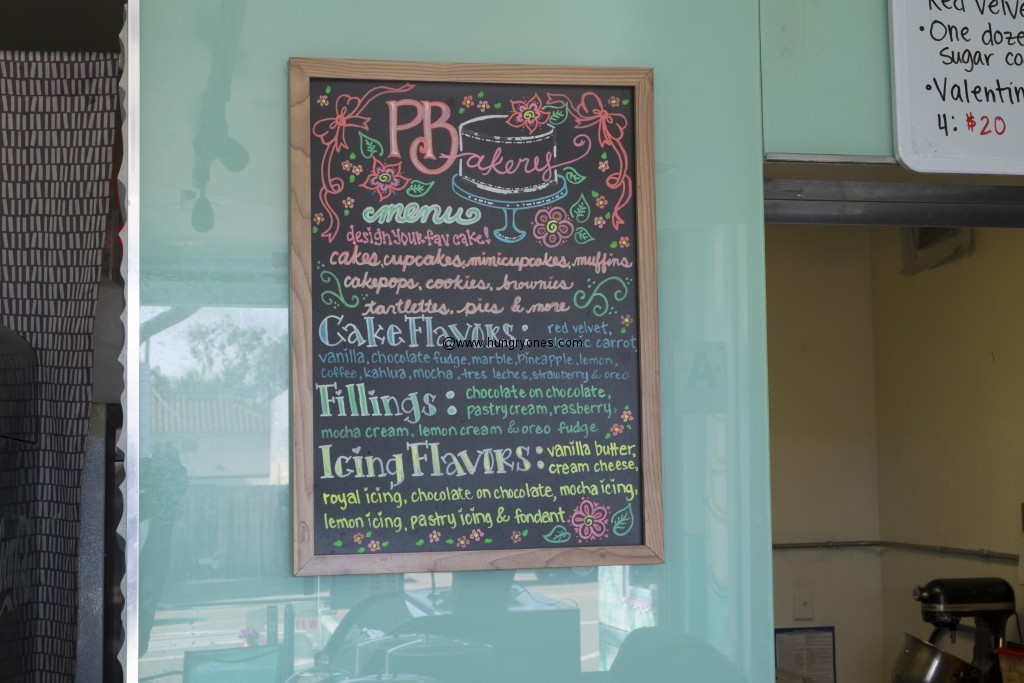 PB akery
menu
design your fav cake!
cakes, cupcakes, minicupcakes, muffins
cakepops, cookies, brownies
tartlettes, pies & more
Cake Flavors: red velvet,
carrot
vanilla, chocolate fudge, marble, Pineapple, lemon,
coffee, kahlua, mocha, tres leches, strawberry & oreo
Fillings: chocolate on chocolate,
pastry cream, rasberry,
mocha cream, lemon cream & oreo fudge
Icing Flavors: vanilla butter,
cream cheese,
royal icing, chocolate on chocolate, mocha icing,
lemon icing, pastry icing & fondant
©www.hungryones.com
Red Velve
•One doze
sugar co
•Valentin
4: $20
A